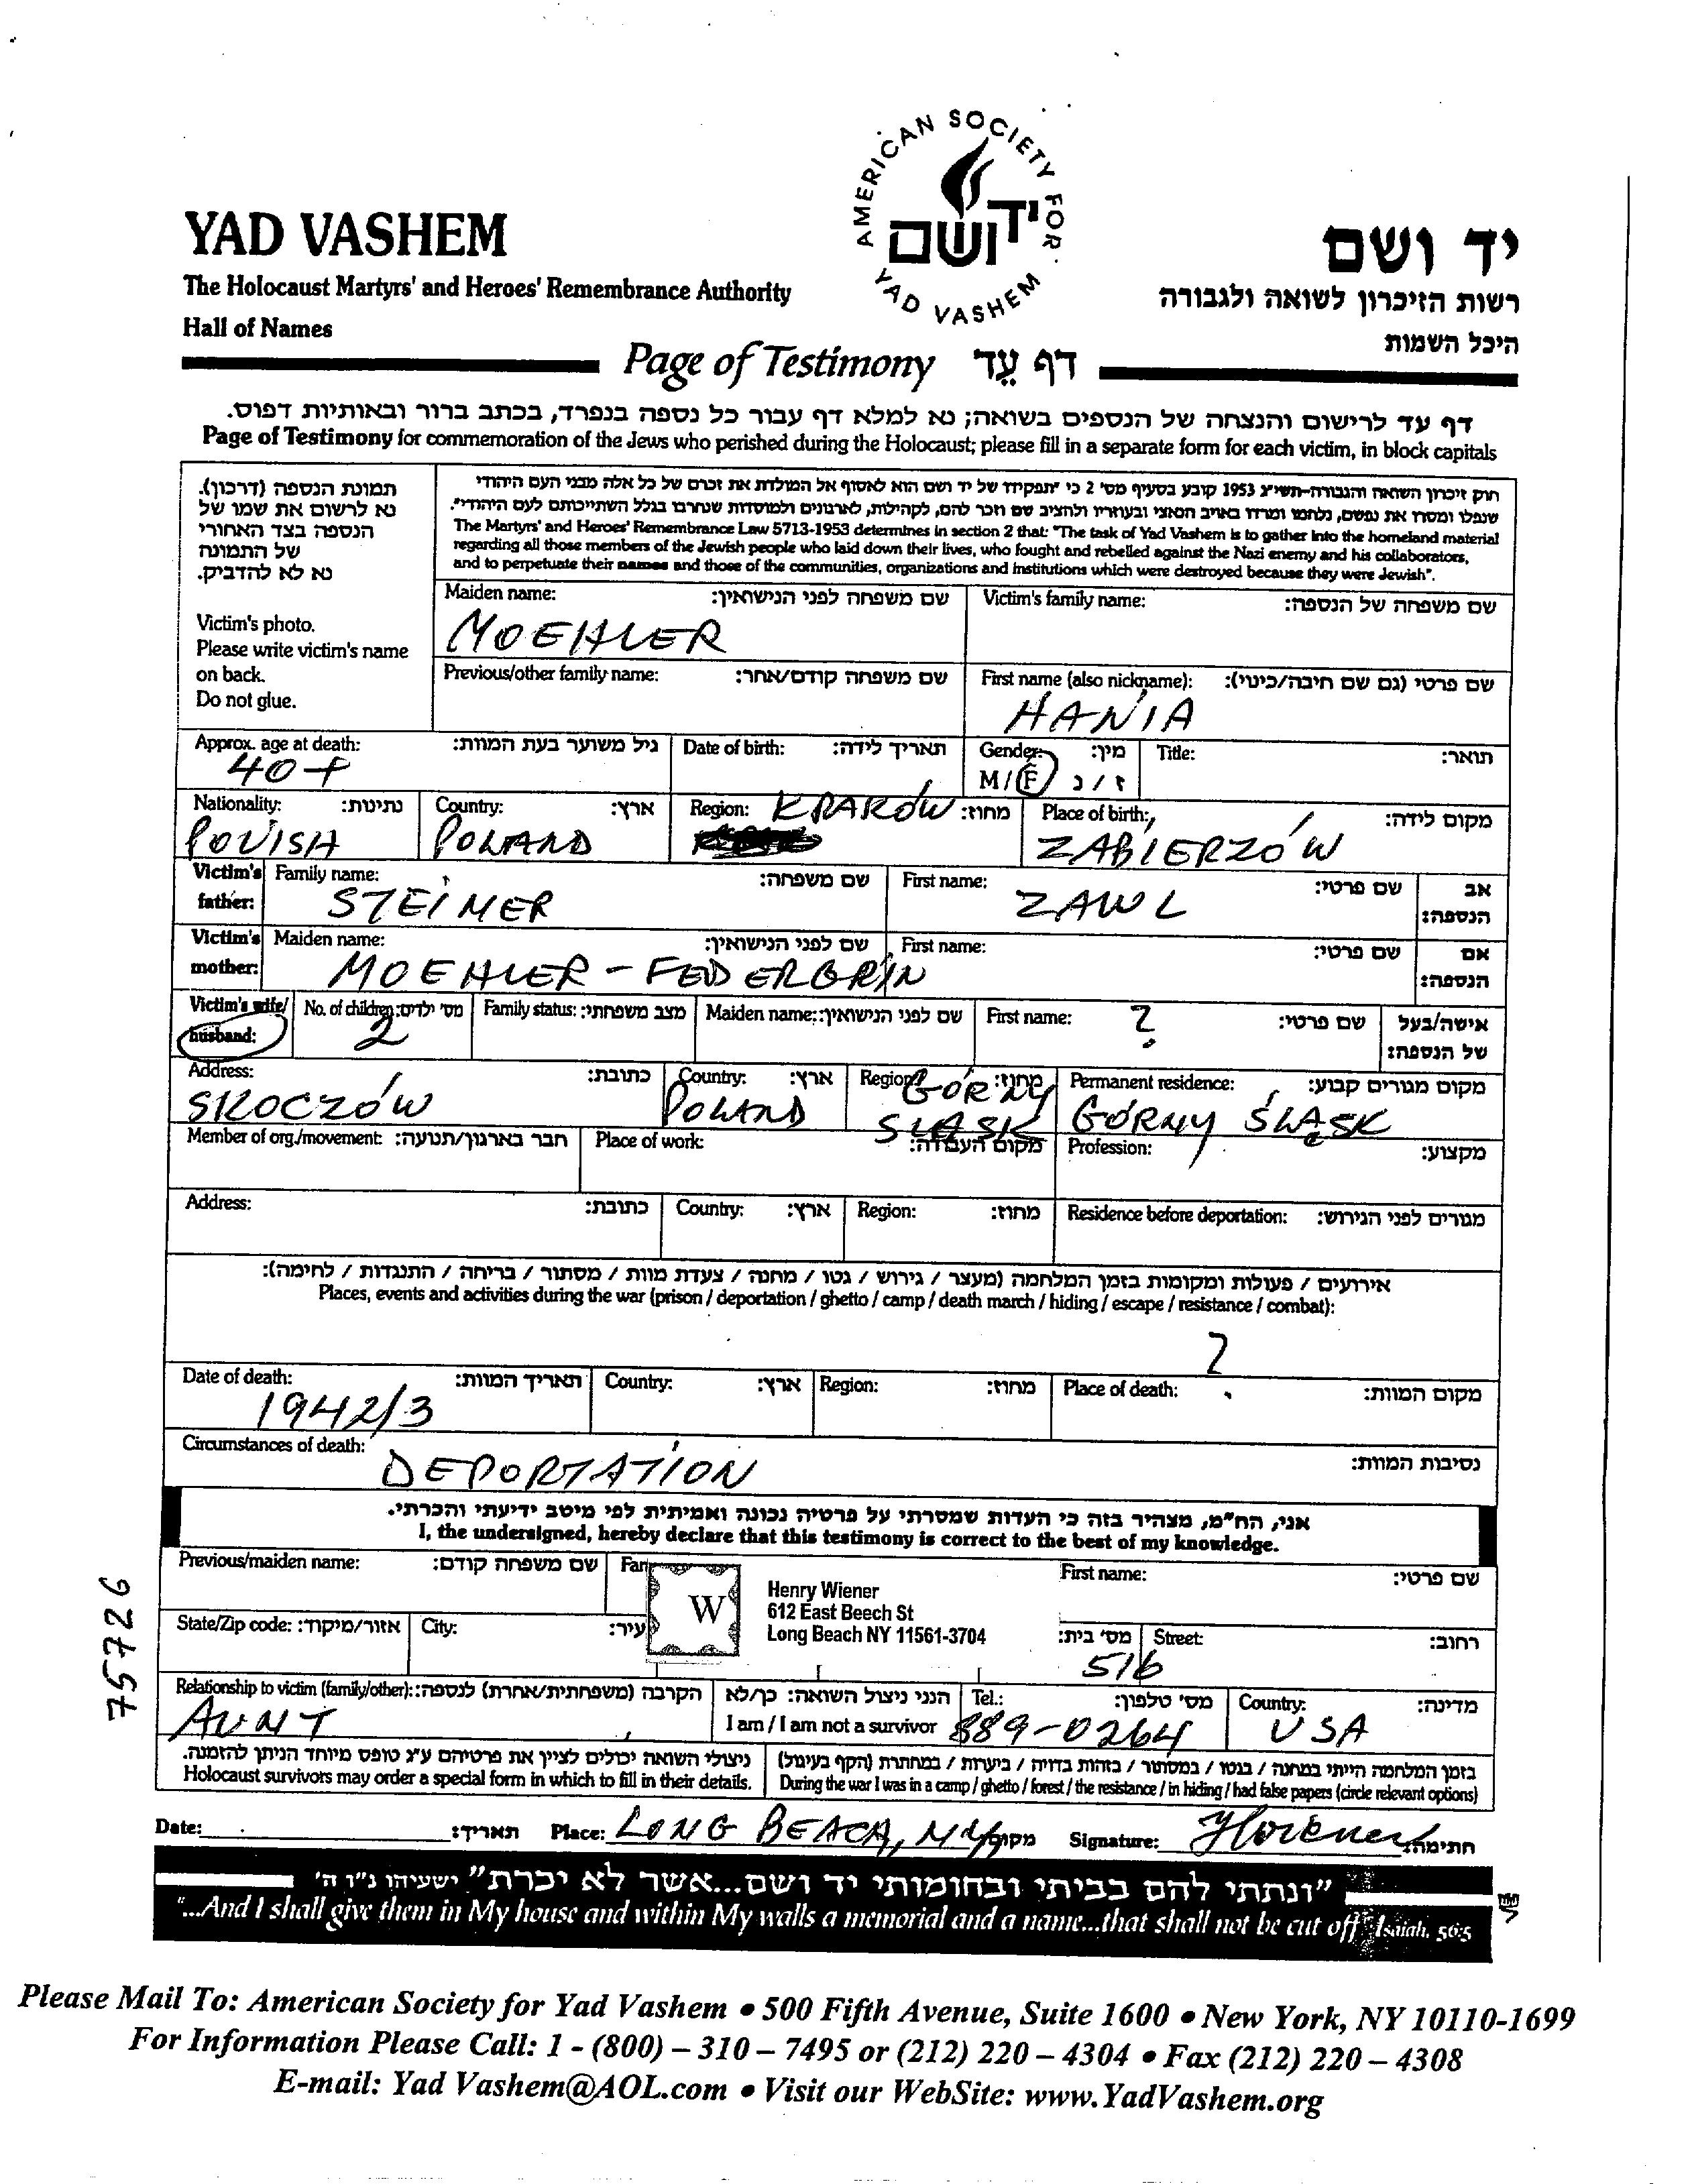 AMERICAN SOCIETY FOR
יד ושם
YAD VASHEM
YAD VASHEM יד ושם
The Holocaust Martyrs' and Heroes' Remembrance Authority רשות הזיכרון לשואה ולגבורה
Hall of Names היכל השמות
Page of Testimony דף עֵד
דף עד לרישום והנצחה של הנספים בשואה; נא למלא דף עבור כל נספה בנפרד, בכתב ברור ובאותיות דפוס.
Page of Testimony for commemoration of the Jews who perished during the Holocaust; please fill in a separate form for each victim, in block capitals
תמונת הנספה (דרכון).
נא לרשום את שמו של
הנספה בצד האחורי
של התמונה
נא לא להדביק.
Victim's photo.
Please write victim's name
on back.
Do not glue.
חוק זיכרון השואה והגבורה-תשי"ג 1953 קובע בסעיף מס' 2 כי "תפקידו של יד ושם הוא לאסוף אל המולדת את זכרם של כל אלה מבני העם היהודי
שנפלו ומסרו את נפשם, נלחמו ומרדו באויב הנאצי ובעוזריו ולהציב שם וזכר להם, לקהילות, לארגונים ולמוסדות שנחרבו בגלל השתייכותם לעם היהודי".
The Martyrs' and Heroes' Remembrance Law 5713-1953 determines in section 2 that: "The task of Yad Vashem is to gather into the homeland material
regarding all those members of the Jewish people who laid down their lives, who fought and rebelled against the Nazi enemy and his collaborators,
and to perpetuate their names and those of the communities, organizations and institutions which were destroyed because they were Jewish".
Maiden name: שם משפחה לפני הנישואין: Victim's family name: שם משפחה של הנספה:
MOEHLER
Previous/other family name: שם משפחה קודם/אחר: First name (also nickname): שם פרטי (גם שם חיבה/כינוי):
HANIA
Approx. age at death: גיל משוער בעת המוות: Date of birth: תאריך לידה: Gender: מין: Title: תואר:
40+ M/F ז/נ
Nationality: נתינות: Country: ארץ: Region: KRAKÓW מחוז: Place of birth: מקום לידה:
POLISH POLAND ZABIERZÓW
Victim's father: Family name: שם משפחה: First name: שם פרטי: אב הנספה:
STEINER ZAWL
Victim's mother: Maiden name: שם לפני הנישואין: First name: שם פרטי: אם הנספה:
MOEHLER - FEDERGRIN
Victim's wife/ husband: No. of children: מס' ילדים: Family status: מצב משפחתי: Maiden name: שם לפני הנישואין: First name: שם פרטי: אישה/בעל של הנספה:
2 ?
Address: כתובת: Country: ארץ: Region: מחוז: Permanent residence: מקום מגורים קבוע:
SKOCZÓW POLAND GÓRNY SLASK GÓRNY ŚLĄSK
Member of org./movement: חבר בארגון/תנועה: Place of work: מקום העבודה: Profession: מקצוע:
Address: כתובת: Country: ארץ: Region: מחוז: Residence before deportation: מגורים לפני הגירוש:
אירועים / פעולות ומקומות בזמן המלחמה (מעצר / גירוש / גטו / מחנה / צעדת מוות / מסתור / בריחה / התנגדות / לחימה):
Places, events and activities during the war (prison / deportation / ghetto / camp / death march / hiding / escape / resistance / combat):
?
Date of death: תאריך המוות: Country: ארץ: Region: מחוז: Place of death: מקום המוות:
1942/3
Circumstances of death: נסיבות המוות:
DEPORTATION
אני, הח"מ, מצהיר בזה כי העדות שמסרתי על פרטיה נכונה ואמיתית לפי מיטב ידיעתי והכרתי.
I, the undersigned, hereby declare that this testimony is correct to the best of my knowledge.
Previous/maiden name: שם משפחה קודם: First name: שם פרטי:
W
Henry Wiener
612 East Beech St
Long Beach NY 11561-3704
State/Zip code: אזור/מיקוד: City: עיר: מס' בית: Street: רחוב:
516
Relationship to victim (family/other): הקרבה (משפחתית/אחרת) לנספה: הנני ניצול השואה: כן/לא Tel.: מס' טלפון: Country: מדינה:
AUNT I am / I am not a survivor 889-0264 USA
ניצולי השואה יכולים לציין את פרטיהם ע"ג טופס מיוחד הניתן להזמנה. בזמן המלחמה הייתי במחנה / בגטו / במסתור / בזהות בדויה / ביערות / במחתרת (הקף בעיגול)
Holocaust survivors may order a special form in which to fill in their details. During the war I was in a camp / ghetto / forest / the resistance / in hiding / had false papers (circle relevant options)
Date: תאריך: Place: LONG BEACH, NY מקום Signature: HWiener חתימה:
"ונתתי להם בביתי ובחומותי יד ושם...אשר לא יכרת" ישעיהו נ"ו ה'
"...And I shall give them in My house and within My walls a memorial and a name...that shall not be cut off" Isaiah, 56:5
75726
Please Mail To: American Society for Yad Vashem • 500 Fifth Avenue, Suite 1600 • New York, NY 10110-1699
For Information Please Call: 1 - (800) – 310 – 7495 or (212) 220 – 4304 • Fax (212) 220 – 4308
E-mail: Yad Vashem@AOL.com • Visit our WebSite: www.YadVashem.org